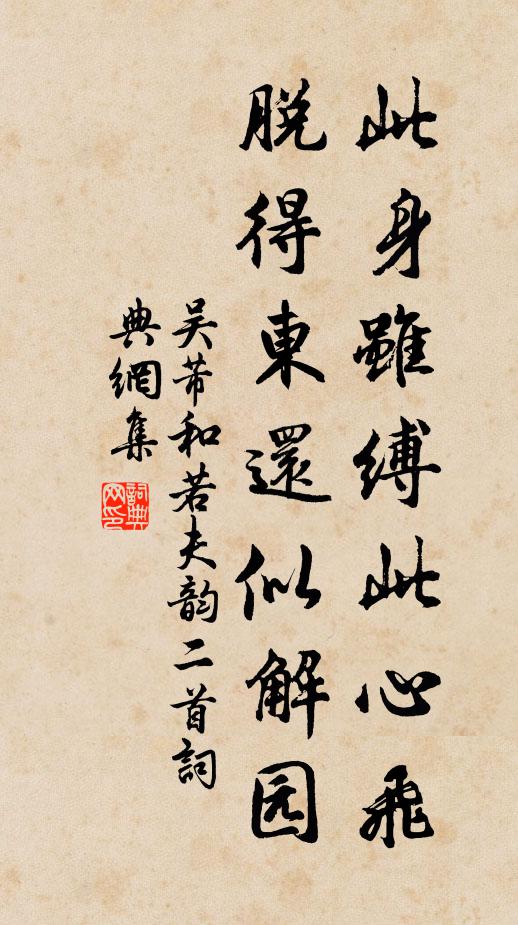 此身雖縛此心飛
脫得東還似解园
吴芾和若夫韵二首詞
典網集
詞典
网印